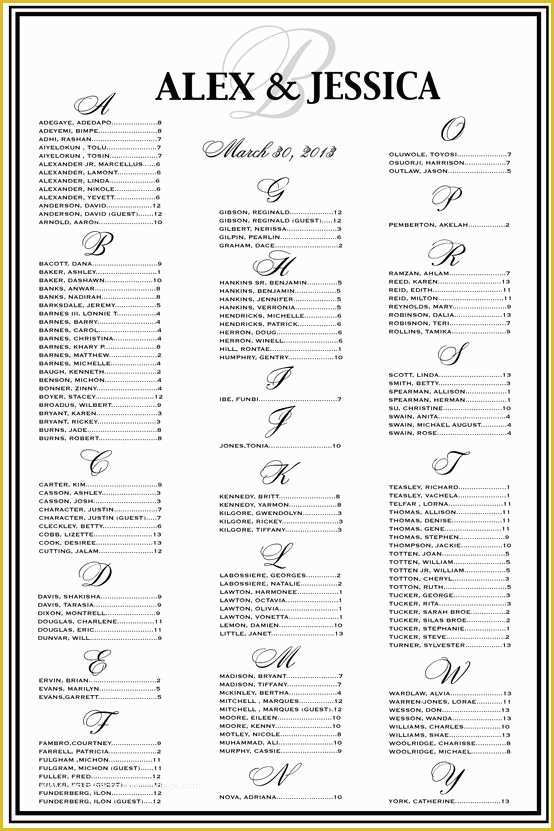 B
ALEX & JESSICA
March 30, 2013
A
ADEGAYE, ADEDAPO....................8
ADEYEMI, BIMPE.......................8
ADHI, RASHAN...........................7
AIYELOKUN , TOLU....................7
AIYELOKUN , TOSIN...................7
ALEXANDER JR, MARCELLUS.....6
ALEXANDER, LAMONT...............6
ALEXANDER, LINDA...................6
ALEXANDER, NIKOLE.................6
ALEXANDER, YEVETT.................6
ANDERSON, DAVID....................12
ANDERSON, DAVID (GUEST)......12
ARNOLD, AARON......................10
B
BACOTT, DANA.........................9
BAKER, ASHLEY........................1
BAKER, DASHAWN....................10
BANKS, ANWAR........................8
BANKS, NADIRAH......................8
BARKSDALE, JEREMY................5
BARNES III, LONNIE T...............4
BARNES, BARRY.......................4
BARNES, CAROL.......................4
BARNES, CHRISTINA.................4
BARNES, KHARY P....................8
BARNES, MATTHEW..................2
BARNES, MICHELLE..................4
BAUGH, KENNETH....................2
BENSON, MICHON....................4
BONNER, ZINNY.......................4
BOYER, STACEY.......................12
BROADUS, WILBERT.................9
BRYANT, KAREN......................3
BRYANT, RICKEY.....................3
BURNS, JADE..........................8
BURNS, ROBERT......................8
C
CARTER, KIM..........................9
CASSON, ASHLEY.....................3
CASSON, JOSH........................3
CHARACTER, JUSTIN................7
CHARACTER, JUSTIN (GUEST)....7
CLECKLEY, BETTY....................6
COBB, LIZETTE.......................13
COOK, DESIREE......................13
CUTTING, JALAM.....................12
D
DAVIS, SHAKISHA....................9
DAVIS, TARASIA......................9
DIXON, MONTRELL..................9
DOUGLAS, CHARLENE..............11
DOUGLAS, ERIC......................11
DUNVAR, WILL.......................9
E
ERVIN, BRIAN........................2
EVANS, MARILYN....................5
EVANS,GARRETT....................5
F
FAMBRO,COURTNEY................9
FARRELL, PATRICIA.................2
FULGHAM ,MICHON................11
FULGRAM, MICHON (GUEST)......11
FULLER, FRED.......................12
FULLER, FRED (GUEST)............12
FUNDERBERG, ILON................12
FUNDERBERG, ILON (GUEST)......12
G
GIBSON, REGINALD.................12
GIBSON, REGINALD (GUEST)......12
GILBERT, NERISSA..................3
GILPIN, PEARLIN....................6
GRAHAM, DACE.....................2
H
HANKINS SR, BENJAMIN...........5
HANKINS, BENJAMIN...............5
HANKINS, JENNIFER................5
HANKINS, VERRONIA...............5
HENDRICKS, MICHELLE............6
HENDRICKS, PATRICK..............6
HERRON, DOUG.....................6
HERRON, WINELL...................6
HILL, RONTAE.......................1
HUMPHRY, GENTRY................10
I
IBE, FUNBI...........................7
J
JONES,TONIA........................10
K
KENNEDY, BRITT....................8
KENNEDY, YARMON.................8
KILGORE, GWENDOLYN............3
KILGORE, RICKEY...................3
KILGORE, TIFFANY..................3
L
LABOSSIERE, GEORGES............2
LABOSSIERE, NATALIE.............2
LAWTON, HARMONEE..............1
LAWTON, OCTAVIA.................1
LAWTON, OLIVIA....................1
LAWTON, VONETTA................1
LEMON, DAMIEN...................10
LITTLE, JANET......................13
M
MADISON, BRYANT.................7
MADISON, TIFFANY................7
McKINLEY, BERTHA................4
MITCHELL , MARQUES............12
MITCHELL , MARQUES (GUEST).12
MOORE, EILEEN...................10
MOORE, KENNY....................10
MOTLEY, NICOLE...................8
MUHAMMAD, ALI...................10
MURPHY, CASSIE...................9
N
NOVA, ADRIANA...................10
O
OLUWOLE, TOYOSI................7
OSUORJI, HARRISON..............7
OUTLAW, JASON...................5
P
PEMBERTON, AKELAH.............2
R
RAMZAN, AHLAM...................7
REED, KAREN......................13
REID, EDITH.......................11
REID, MILTON.....................11
REYNOLDS, MARY.................9
ROBINSON, DALIA................13
ROBISNON, TERI..................7
ROLLINS, TAMIKA.................9
S
SCOTT, LINDA.....................13
SMITH, BETTY.....................3
SPEARMAN, ALLISON.............1
SPEARMAN, HERMAN.............1
SU, CHRISTINE...................10
SWAIN, ANITA.....................4
SWAIN, MICHAEL AUGUST......4
SWAIN, ROSE.....................4
T
TEASLEY, RICHARD...............1
TEASLEY, VACHELA..............1
TELFAR , LORNA..................11
THOMAS, ALLISON..............11
THOMAS, DENISE................11
THOMAS, GENE...................11
THOMAS, STEPHEN..............9
THOMPSON, JACKIE.............10
TOTTEN, JOAN....................5
TOTTEN, WILLIAM...............5
TOTTEN JR, WILLIAM...........5
TOTTON, CHERYL................3
TOTTON, RUTH...................5
TUCKER, GEORGE................3
TUCKER, RITA....................3
TUCKER, SARAH BROE..........2
TUCKER, SILAS BROE...........2
TUCKER, STEPHANIE............1
TUCKER, STEVE..................2
TURNER, SYLVESTER............13
W
WARDLAW, ALVIA................13
WARREN-JONES, LORAE........11
WESSON, DON...................13
WESSON, WANDA................13
WILLIAMS, CHARLES............10
WILLIAMS, SHAE.................13
WOOLRIDGE, CHARISSE........8
WOOLRIDGE, MICHAEL..........8
Y
YORK, CATHERINE...............13